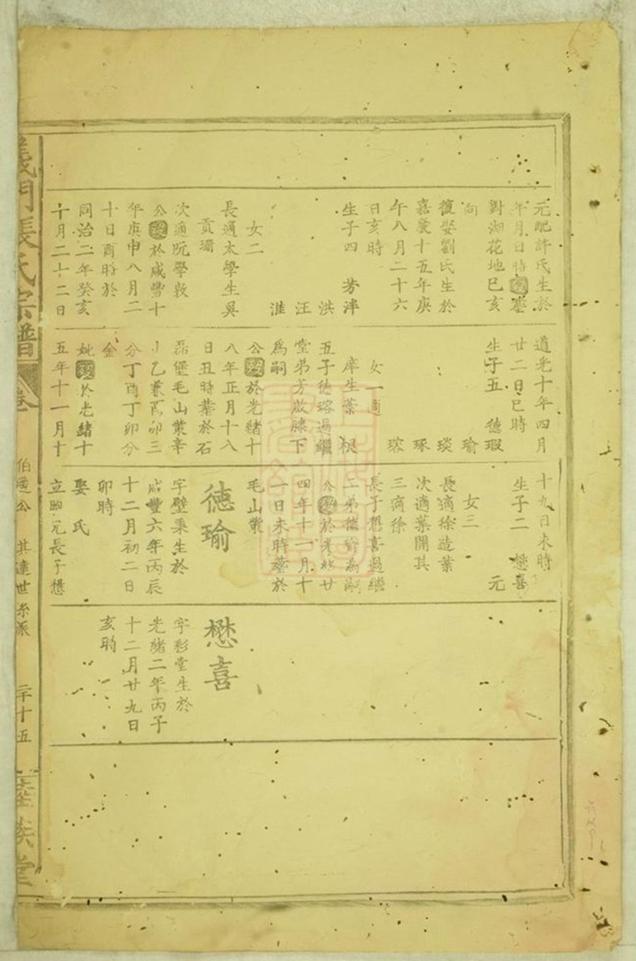 元配許氏生於
年月日時歿塟
對湖花地巳亥
向
復娶劉氏生於
嘉慶十五年庚
午八月二十六
日亥時
生子四 芳洋
洪
汪
淮
女二
長適太學生吳
貢珊
次適阮學敦
公歿於咸豐十
年庚申八月二
十日酉時於
同治二年癸亥
十月二十二日
道光十年四月
廿二日巳時
生子五 德瑕
瑜
琰
琢
瑢
女一適
庠生葉根
五子德瑢過繼
堂弟芳啟膝下
爲嗣
公歿於光緒十
八年正月十八
日丑時葬於石
磊堡毛山業辛
乙兼酉卯三
分丁酉丁卯分
金
妣歿於光緒十
五年十一月十
十九日未時
生子二 懋喜
元
女三
長適徐造業
次適葉開其
三適徐
長子懋喜過繼
二弟德瑜為嗣
公歿於光緒廿
四年十一月十
一日未時葬於
毛山業
德瑜
字壁秉生於
咸豐六年丙辰
十二月初二日
卯時
娶氏
立胞兄長子懋
懋喜
字彩堂生於
光緒二年丙子
十二月廿九日
亥時
義門張氏宗譜
卷
伯遠公 其達世系派
二十五
睦族堂